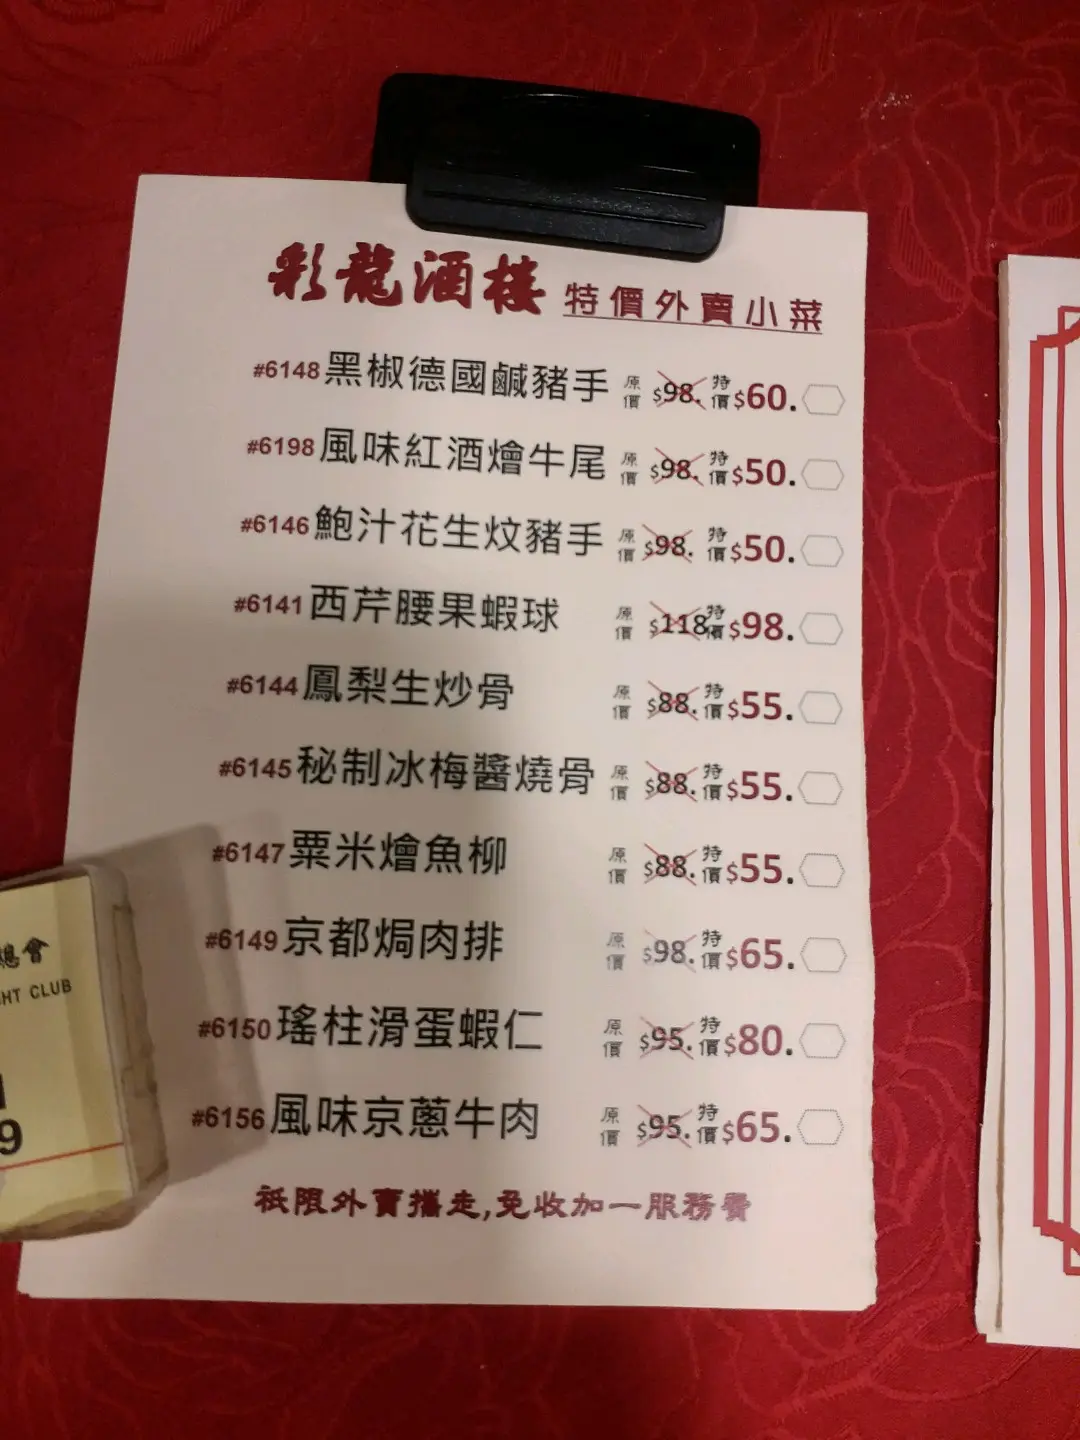 彩龍酒樓 特價外賣小菜
#6148 黑椒德國鹹豬手 原價 $98. 特價 $60.
#6198 風味紅酒燴牛尾 原價 $98. 特價 $50.
#6146 鮑汁花生炆豬手 原價 $98. 特價 $50.
#6141 西芹腰果蝦球 原價 $118. 特價 $98.
#6144 鳳梨生炒骨 原價 $88. 特價 $55.
#6145 秘制冰梅醬燒骨 原價 $88. 特價 $55.
#6147 粟米燴魚柳 原價 $88. 特價 $55.
#6149 京都焗肉排 原價 $98. 特價 $65.
#6150 瑤柱滑蛋蝦仁 原價 $95. 特價 $80.
#6156 風味京蔥牛肉 原價 $95. 特價 $65.
祇限外賣攜走,免收加一服務費
總會
HT CLUB
9